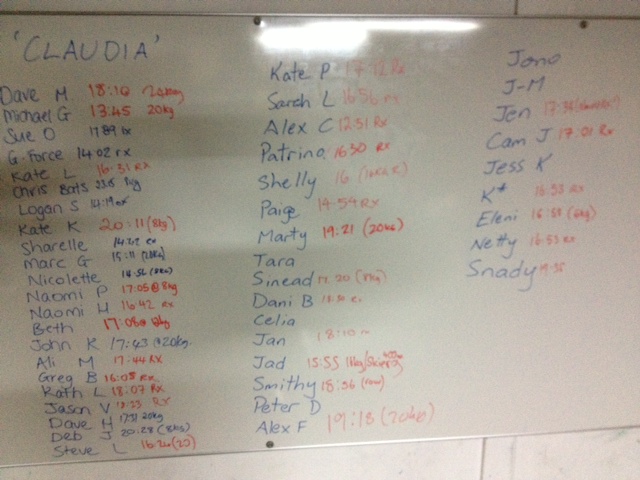 'CLAUDIA'
Dave M 18:16
Michael G 13:45 20kg
Sue O
G-Force 14:02 rx
Kate L 16:31 Rx
Chris Bats
Logan S 14:19
Kate K 20:11 (8kg)
Sharelle
Marc G 15:11
Nicolette 14:56 (8kg)
Naomi P 17:05 @8kg
Naomi H 16:42 Rx
Beth 17:08
John K 17:43 @20kg
Ali M 17:44 Rx
Greg B 16:05 Rx
Kath L 18:07 Rx
Jason V Rx
Dave H 20kg
Deb J 20:28 (8kg)
Steve L
Kate P 17:12 Rx
Sarah L 16:56 rx
Alex C 12:51 Rx
Patrino 16:30 Rx
Shelly 16
Paige 14:59 Rx
Marty 19:21 (20kg)
Tara
Sinead
Dani B
Celia
Jan 18:10
Jad 15:55
Smithy 18:56
Peter D
Alex F 19:18 (20kg)
Jono
J-M
Jen 17:38
Cam J 17:01 Rx
Jess K
K* 16:53 Rx
Eleni 16:59
Netty 16:53 Rx
Snady